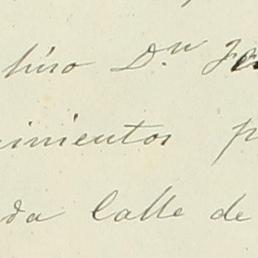 hizo Dn Fe
imientos p
da Calle de